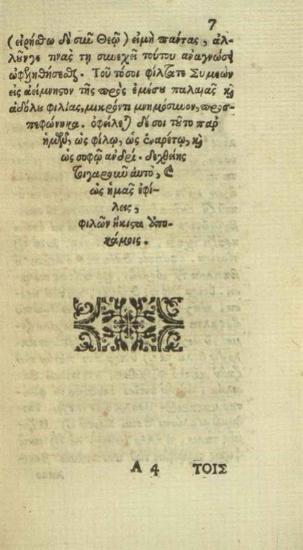 7
(εἰρήσθω δὲ σὺν Θεῷ) εἰ μὴ πάντας, ἀλ-
λ' οὖν γε τινὰς τῇ συνεχεῖ τούτου ἀναγνώσει
ὠφεληθήσεσθαι. Τοῦτό σοι φίλτατε Συμεὼν
εἰς ἀείμνηστον τῆς πρὸς ἐμέ σου παλαιᾶς καὶ
ἀδόλου φιλίας, μικρόν τι μνημόσυνον, προσ-
πεφώνηκα. ὀφείλεται δέ σοι τοῦτο παρ'
ἡμῶν, ὡς φίλῳ, ὡς ἐναρέτῳ, καὶ
ὡς σοφῷ ἀνδρί. δεχθείης
τοιγαροῦν αὐτό, καὶ
ὡς ἡμᾶς ἐφί-
λεις,
φιλῶν ἥκιστα ὑπο-
κάμοις.
A 4 ΤΟΙΣ